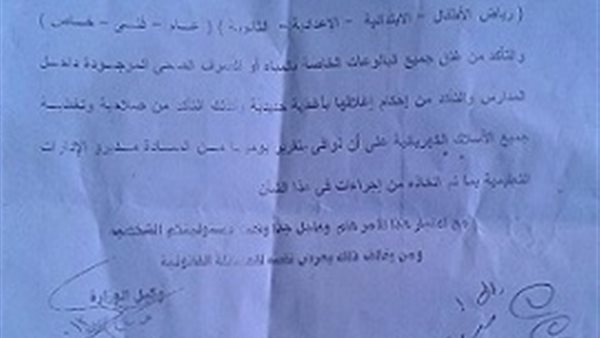 ( رياض الأطفال - الابتدائية - الاعدادية - الثانوية ) ( عام - فنى - خاص )
والتأكد من غلق جميع البالوعات الخاصة بالمياه أو الصرف الصحى الموجودة داخل
المدارس والتأكد من إحكام إغلاقها بأغطية حديدية وكذلك التأكد من صلاحية وتغطية
جميع الأسلاك الكهربائية على أن نوافى بتقرير يوميا من السادة مديرى الإدارات
التعليمية بما تم اتخاذه من إجراءات فى هذا الشأن
مع اعتبار هذا الأمر هام وعاجل جدا وتحت مسئوليتكم الشخصية
ومن يخالف ذلك يعرض نفسه للمسائلة القانونية
وكيل الوزارة